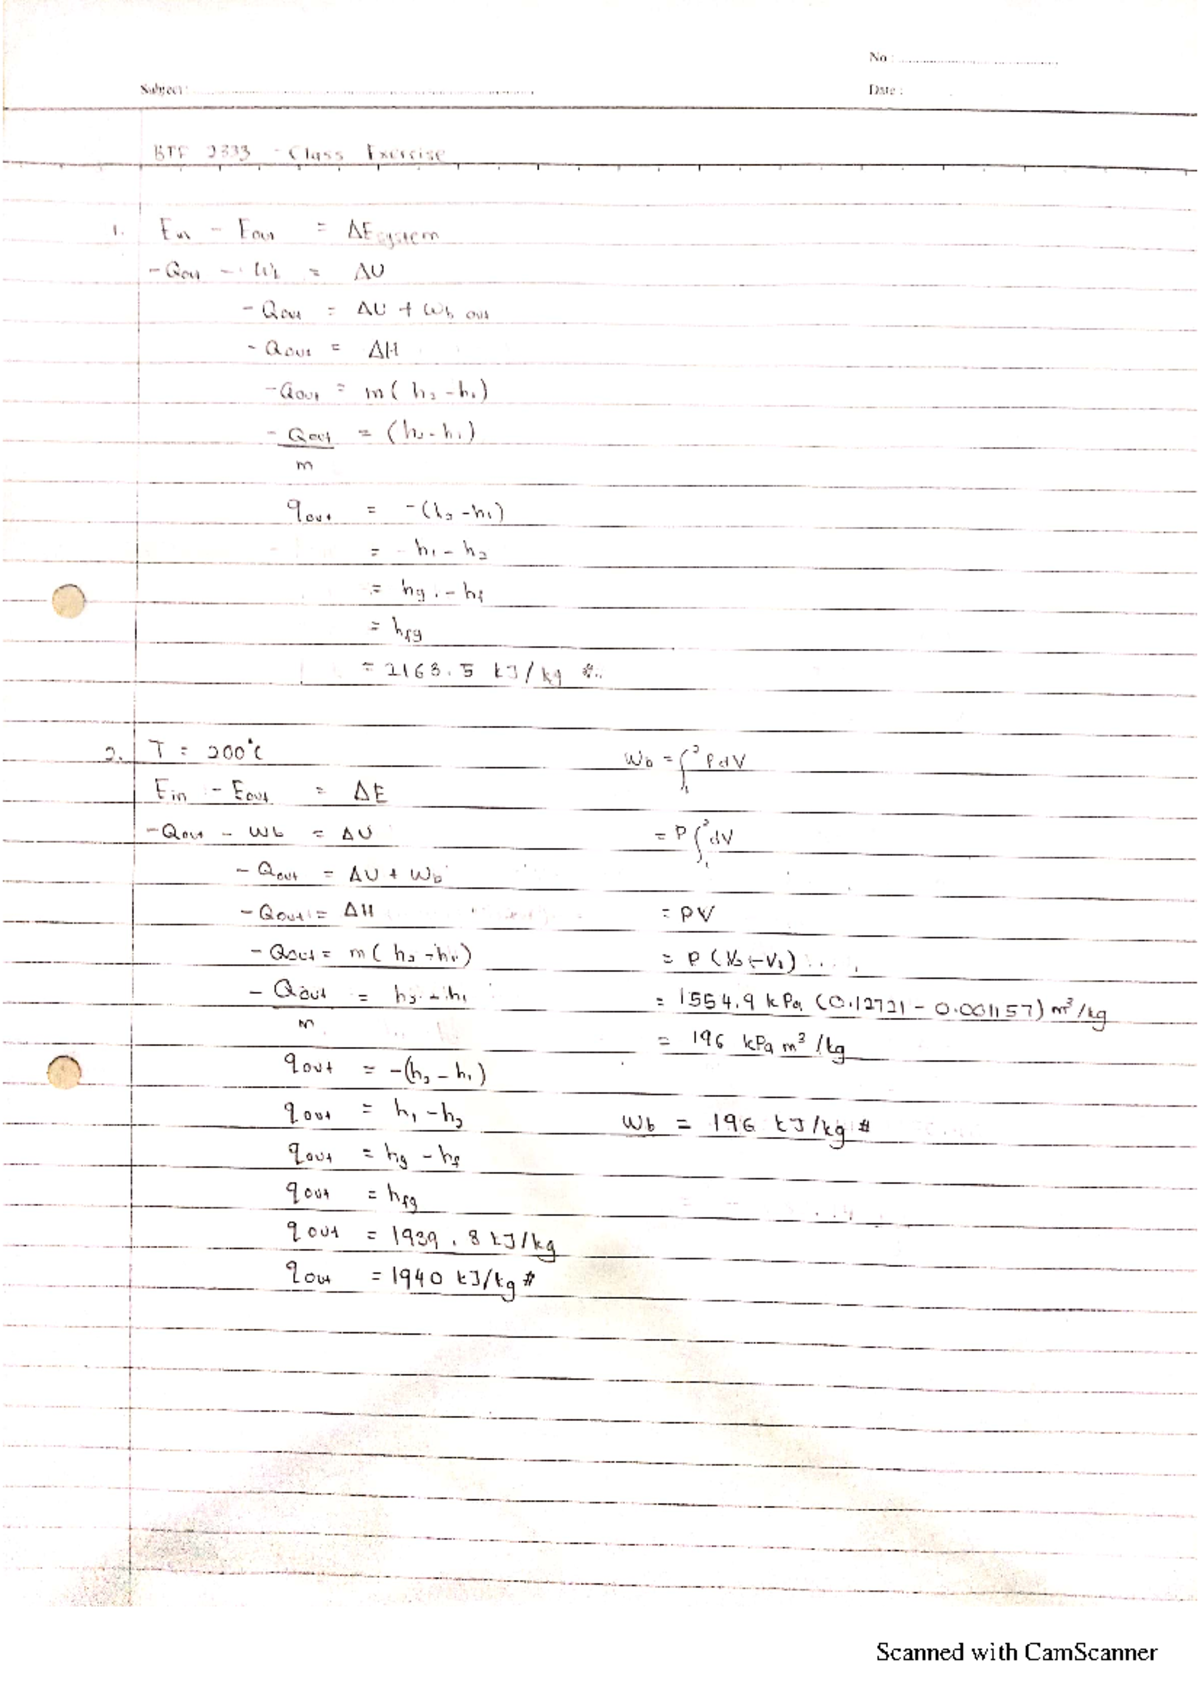 No :
Subject :
Date :
BTF 2333 - Class Exercise
1. Ein - Eout = ΔEsystem
-Qout - Wb = ΔU
-Qout = ΔU + Wb out
-Qout = ΔH
-Qout = m( h2 - h1)
-Qout/m = (h2 - h1)
qout = -(h2 - h1)
= h1 - h2
= hg - hf
= hfg
= 2163.5 kJ/kg #
2. T = 200°C
Ein - Eout = ΔE
-Qout - Wb = ΔU
-Qout = ΔU + Wb
-Qout = ΔH
-Qout = m( h2 - h1)
-Qout/m = h2 - h1
qout = -(h2 - h1)
qout = h1 - h2
qout = hg - hf
qout = hfg
qout = 1939.8 kJ/kg
qout = 1940 kJ/kg #
Wb = ∫₁² PdV
= P∫₁² dV
= PV
= P (V2 - V1)
= 1554.9 kPa (0.12721 - 0.001157) m³/kg
= 196 kPa m³/kg
Wb = 196 kJ/kg #
Scanned with CamScanner